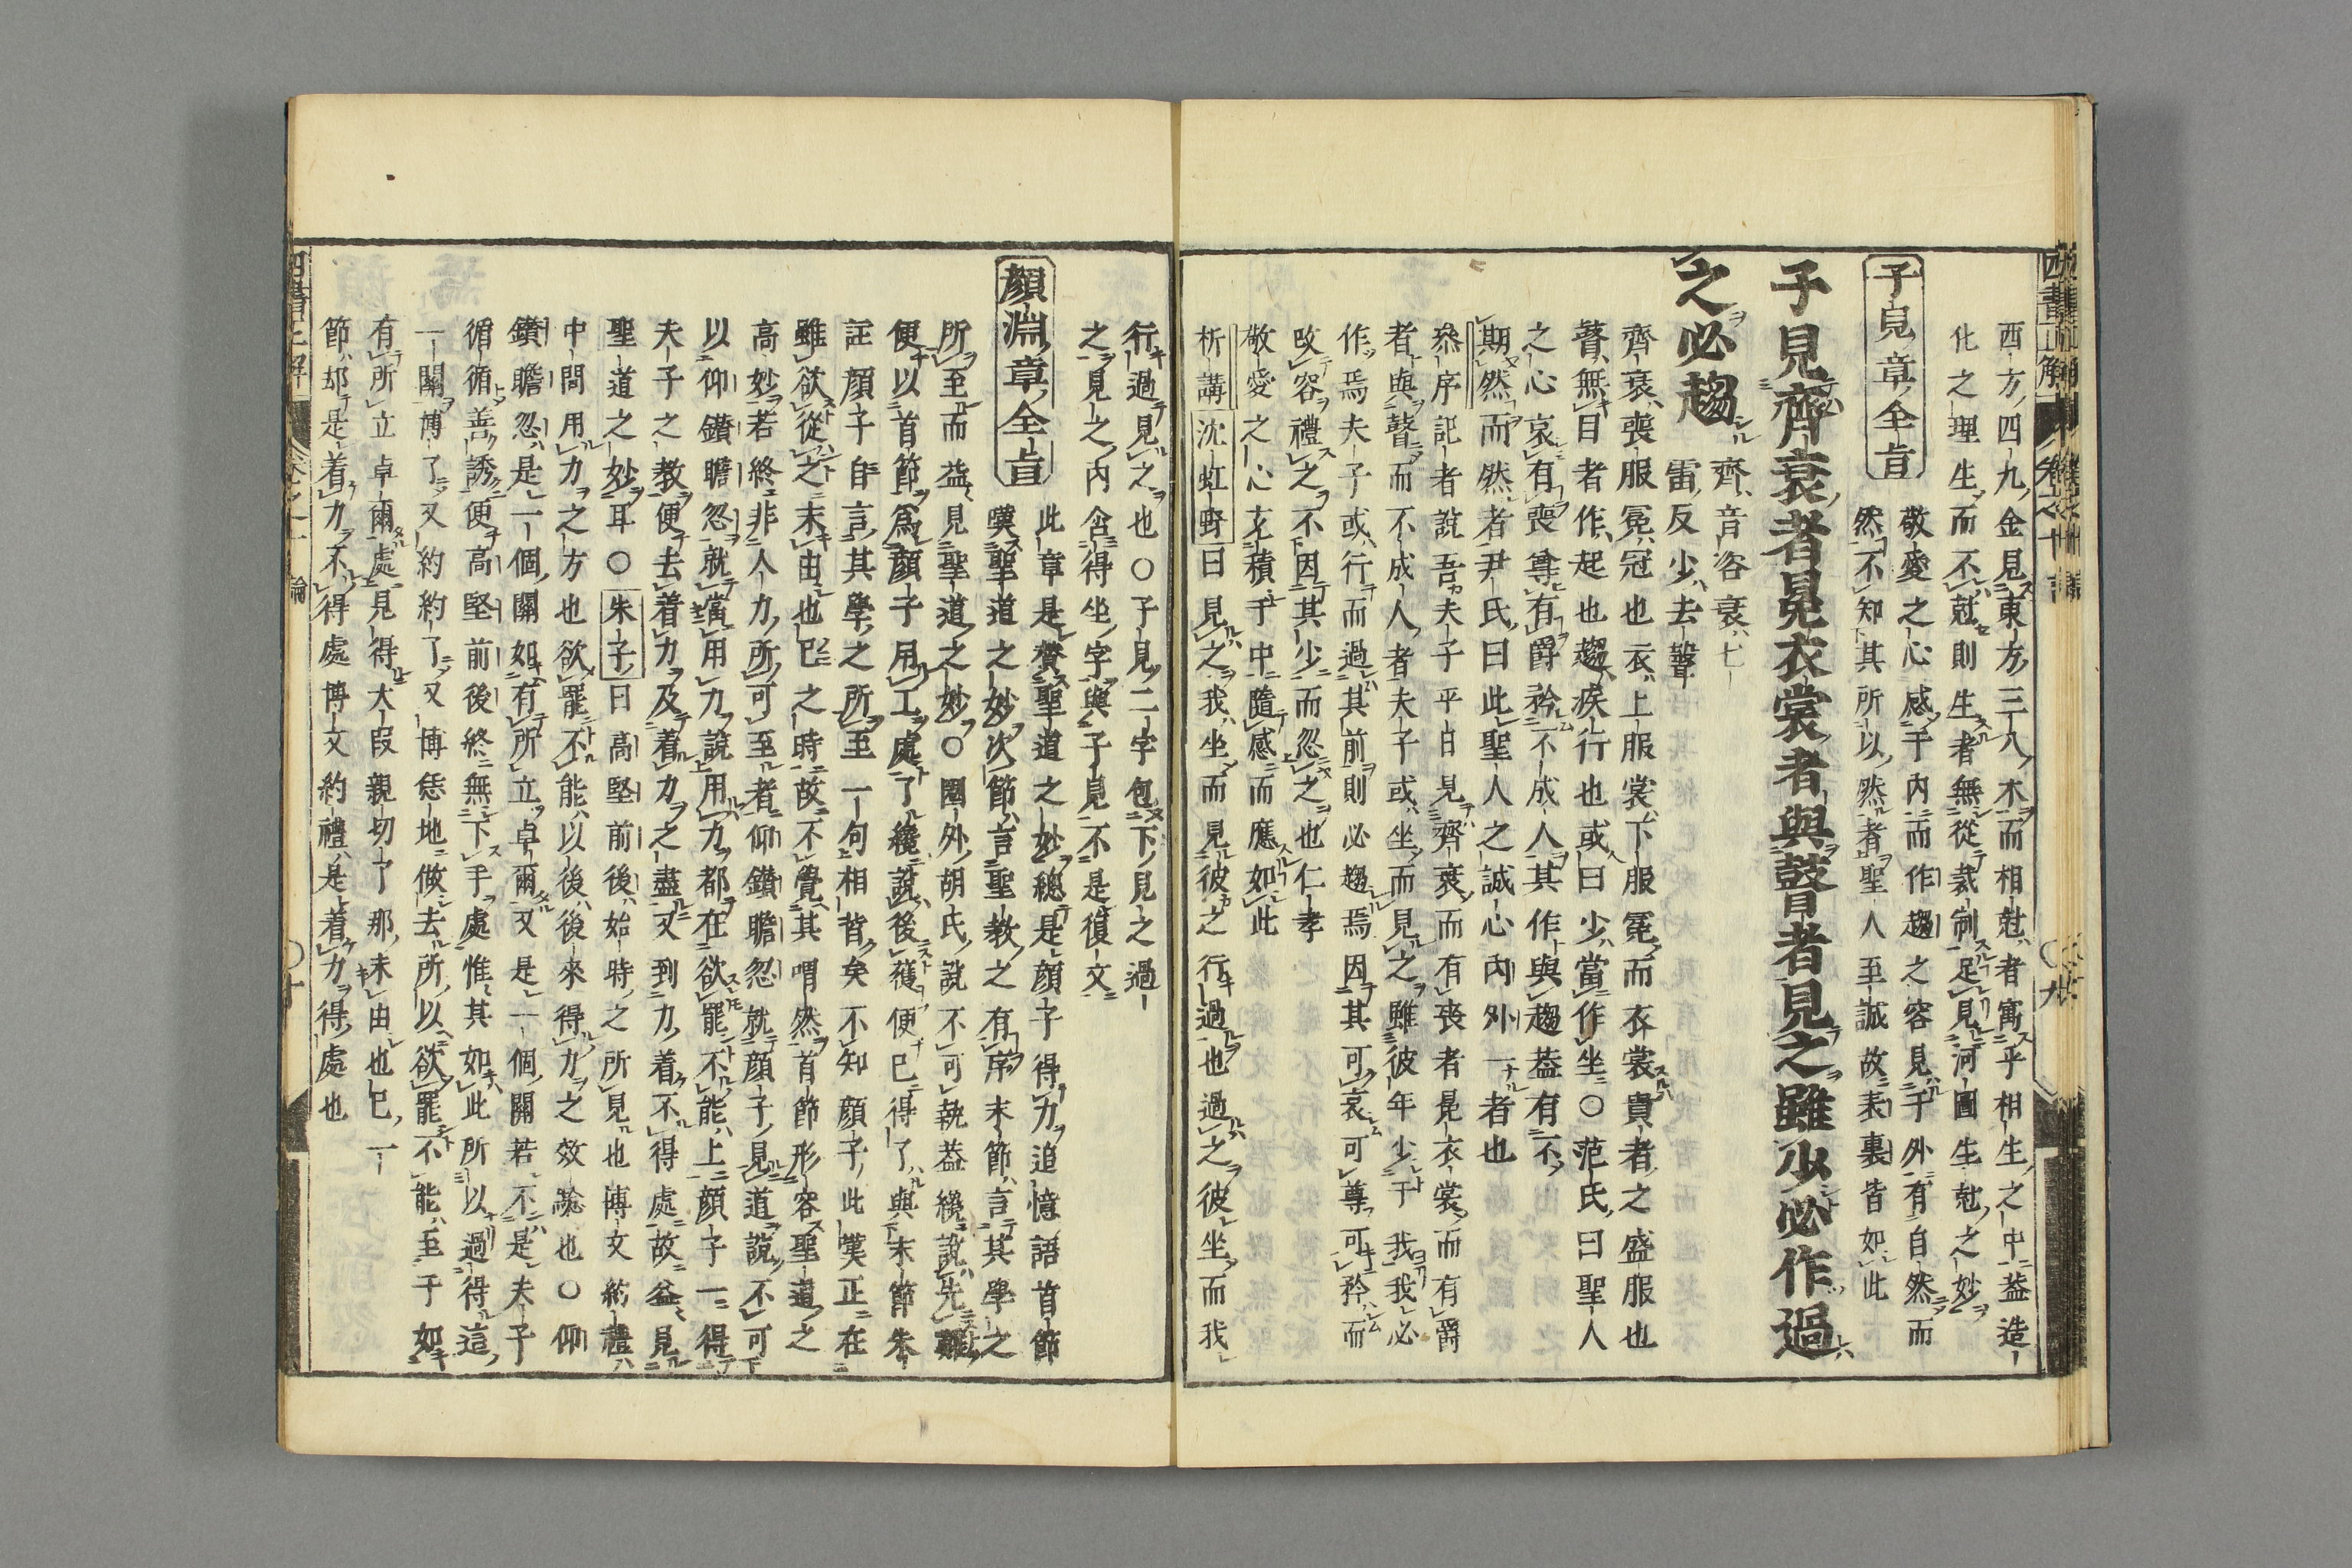 西方四九金見東方三八木而相尅者寓乎相生之中葢造
化之理生而不尅則生者無從裁制足見河圖生尅之妙
子見章全旨
敬愛之心感于内而作趨之容見于外有自然而
然不知其所以然者聖人至誠故表裏皆如此
子見齊衰者冕衣裳者與瞽者見之雖少必作過
之必趨
齊音咨衰七
雷反少去聲
齊衰喪服冕冠也衣上服裳下服冕而衣裳貴者之盛服也
瞽無目者作起也趨疾行也或曰少當作坐○范氏曰聖人
之心哀有喪尊有爵矜不成人其作與趨葢有不
期然而然者尹氏曰此聖人之誠心内外一者也
叅序記者說吾夫子平日見齊衰而有喪者冕衣裳而有爵
者與瞽而不成人者夫子或坐而見之雖彼年少于我我必
作焉夫子或行而過其前則必趨焉因其可哀可尊可矜而
改容禮之不因其少而忽之也仁孝
敬愛之心充積于中隨感而應如此
析講沈虹野曰見之我坐而見彼之行過也過之彼坐而我
行過見之也○子見二字包下見之過
之見之内含得坐字與子見不是復文
顏淵章全旨
此章是贊聖道之妙總是顏子得力追憶語首節
嘆聖道之妙次節言聖教之有序末節言其學之
所至而益見聖道之妙○圈外胡氏說不可執葢纔說先難
便以首節爲顏子用工處了纔說後獲便已得了與末節朱
註顏子自言其學之所至一句相背矣不知顏子此嘆正在
雖欲從之末由也已之時故不覺其喟然首節形容聖道之
高妙若終非人力所可至者仰鑽瞻忽就顏子見道說不可
以仰鑽瞻忽就當用力說用力都在欲罷不能上顏子一得
夫子之教便去着力及着力之盡又到力着不得處故益見
聖道之妙耳○朱子曰高堅前後始時之所見也博文約禮
中間用力之方也欲罷不能以後後來得力之效驗也○仰
鑽瞻忽是一個關如有所立卓爾又是一個關若不是夫子
循循善誘便高堅前後終無下手處惟其如此所以過得這
一關博了又約約了又博恁地做去所以欲罷不能至于如
有所立卓爾處見得大段親切了那末由也已一
節却是着力不得處博文約禮是着力得處也